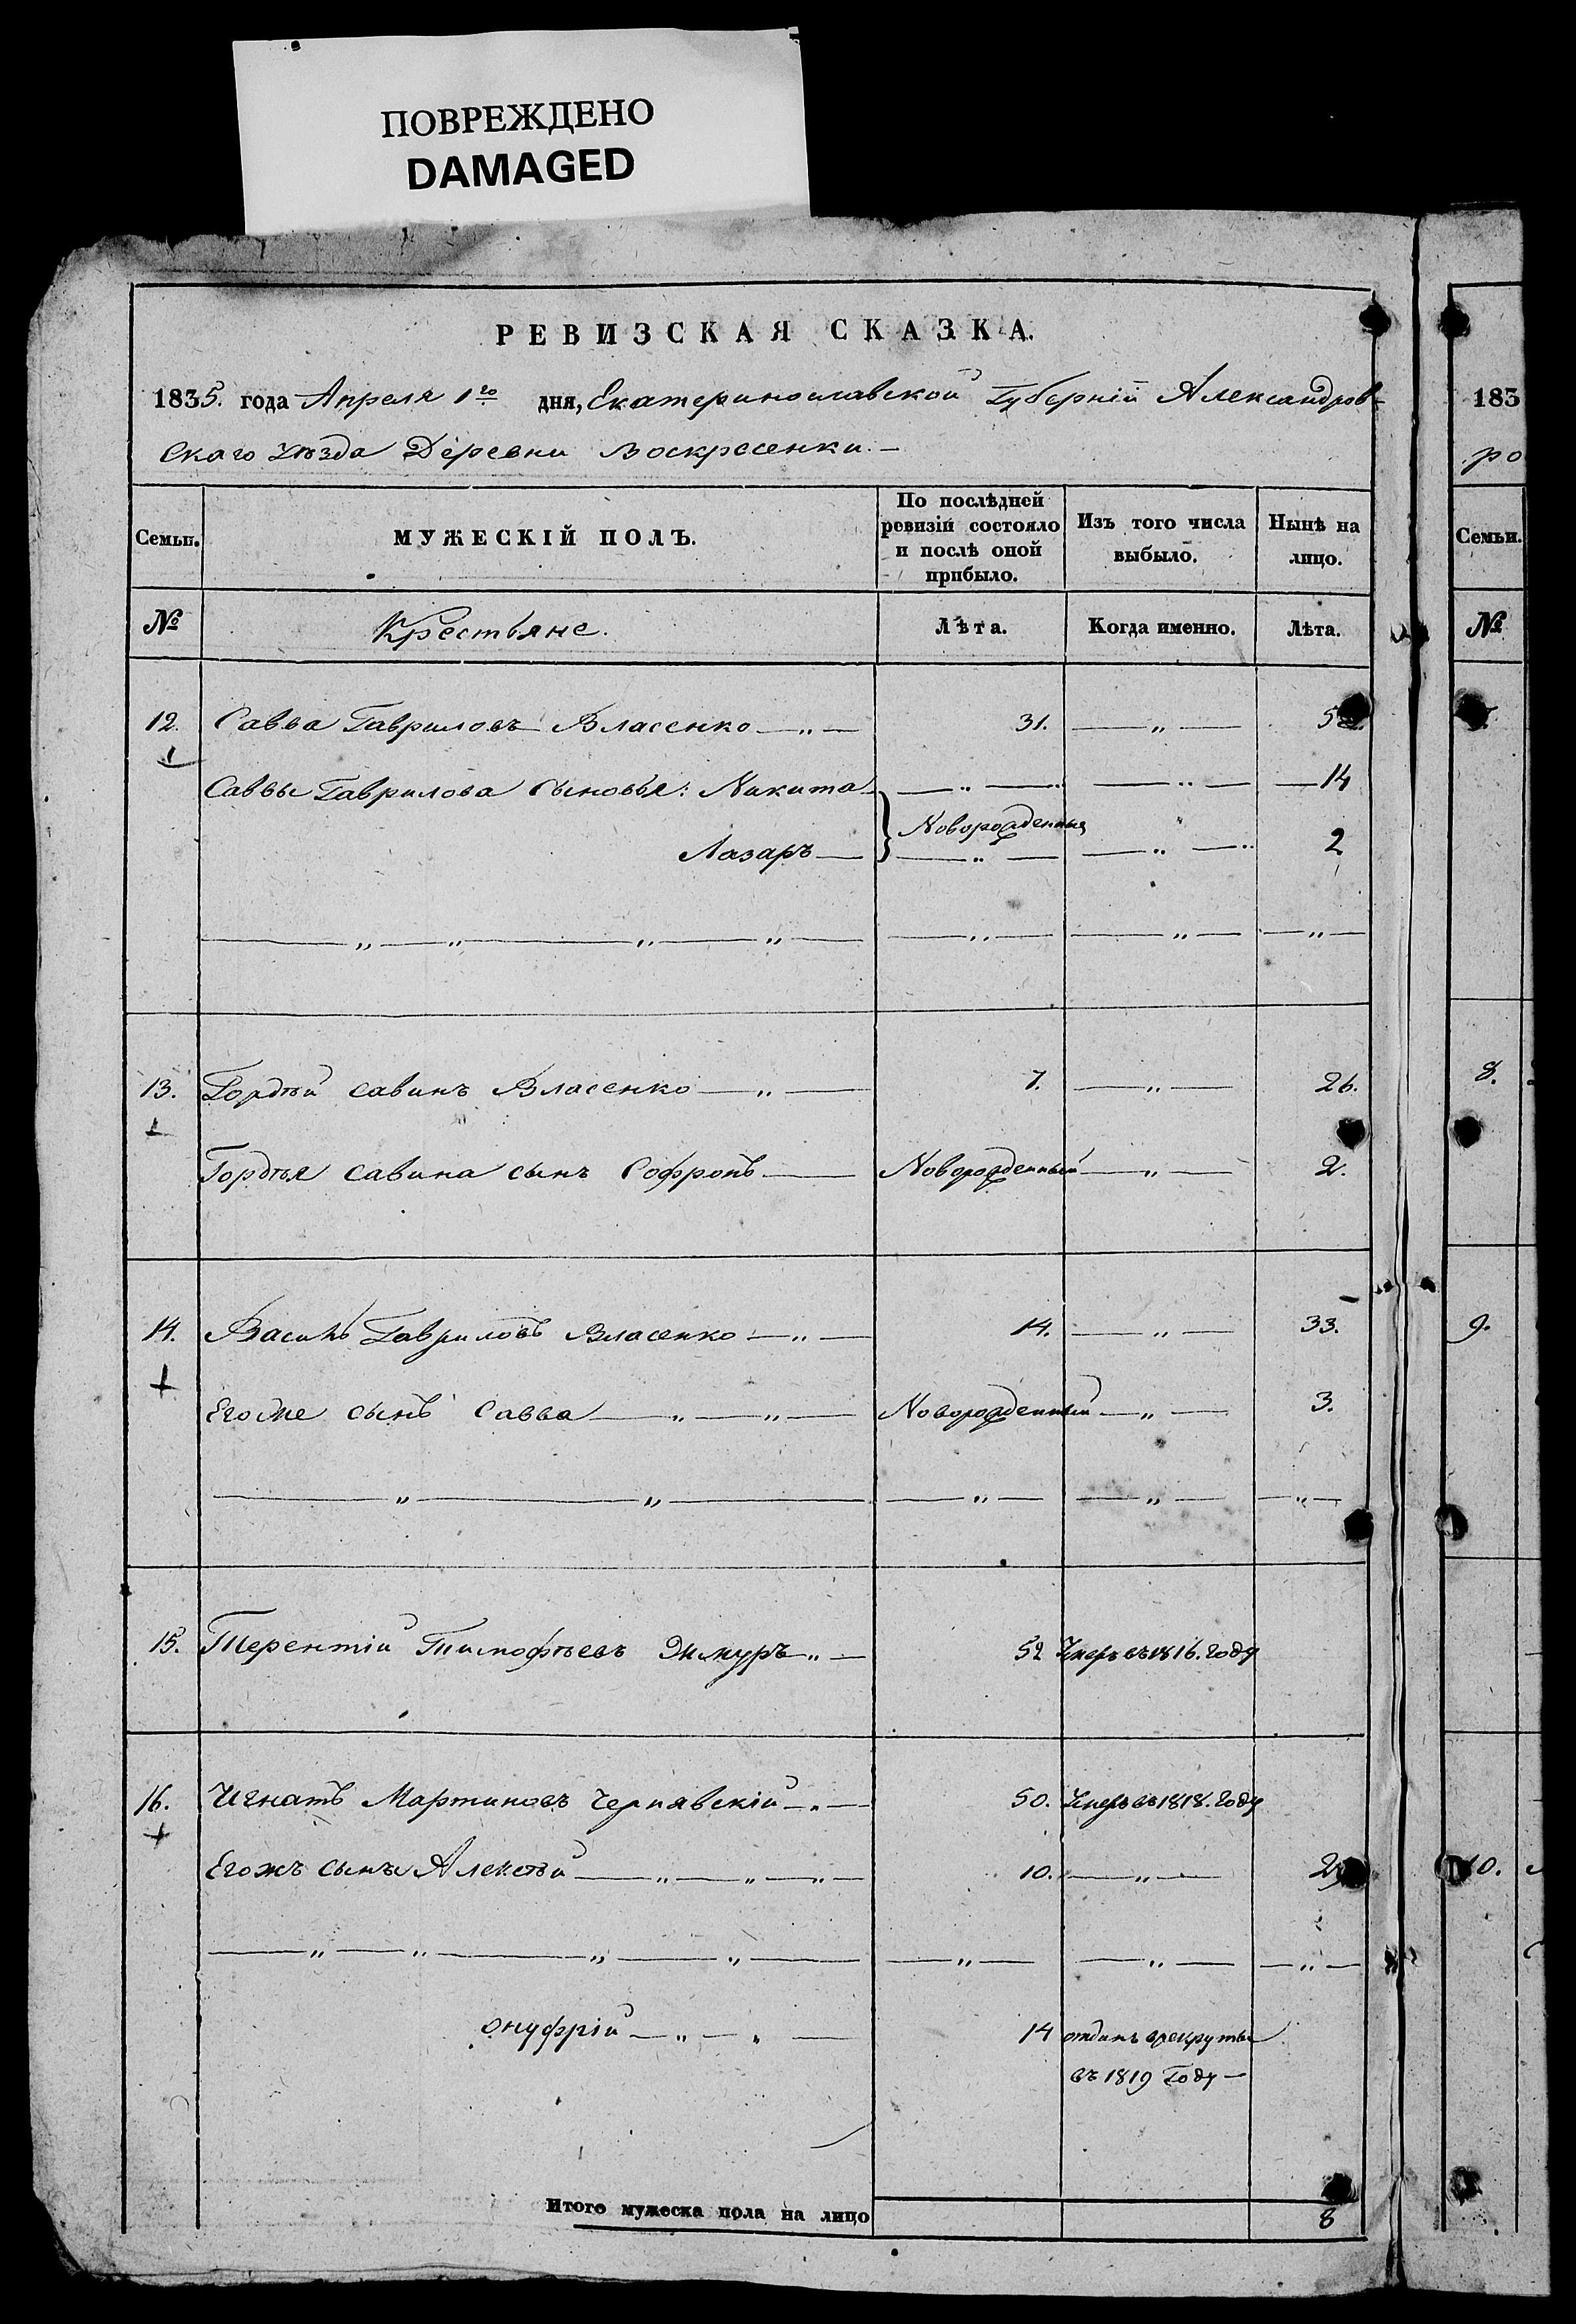 ПОВРЕЖДЕНО
DAMAGED
РЕВИЗСКАЯ СКАЗКА.
1835. года Апреля 1го дня, Екатеринославской Губерніи Александров-
скаго уѣзда Деревни Воскресенки. —
183
ро
Семьи. МУЖЕСКІЙ ПОЛЪ. По послѣдней ревизіи состояло и послѣ оной прибыло. Изъ того числа выбыло. Нынѣ на лицо.
Семьи.
№ Крестьяне. Лѣта. Когда именно. Лѣта.
№
12. Савва Гавриловъ Власенко —„— 31. —„— 5
Саввы Гаврилова сыновья: Никита —„— —„— 14
Лазаръ — } Новорожденныя —„— 2
—„—„—„—„— —„— —„— —„—
13. Гордѣй савинъ Власенко —„— 7. —„— 26.
8.
Гордѣя савина сынъ Софронъ — Новорожденный —„— 2.
14. Василь Гавриловъ Власенко —„— 14. —„— 33.
9.
Егоже сынъ Савва —„—„— Новорожденный —„— 3.
—„—„— —„— —„— —„—
15. Терентій Тимофѣевъ Жмуръ „— 52 Умеръ въ 1816. году
16. Игнатъ Мартиновъ Чернявскій —„— 50. Умеръ въ 1818. году
Егожъ сынъ Алексѣй —„—„—„— 10. —„— 2
10.
—„—„—„—„— —„— —„— —„—
Онуфрій —„—„— 14 отданъ врекруты
въ 1819 Году —
Итого мужеска пола на лицо 8